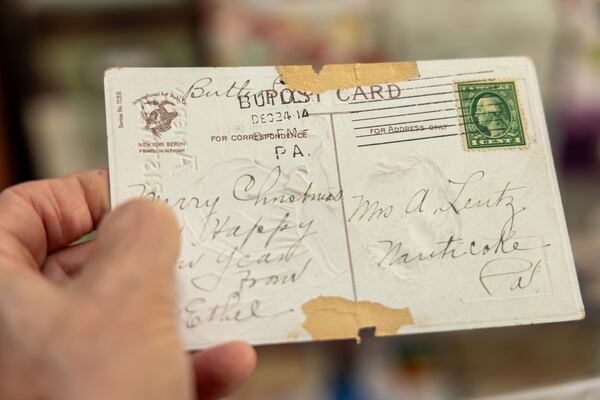 Series No. 1138
International Art Publ. Co.
NEW YORK BERLIN
PRINTED IN GERMANY
POST CARD
DEC 24 14
PM
PA.
FOR CORRESPONDENCE
FOR ADDRESS ONLY
1 CENT 1
Merry Christmas
Happy
Year
From
Ethel
Mrs A. Lentz
Nanticoke
Pa.